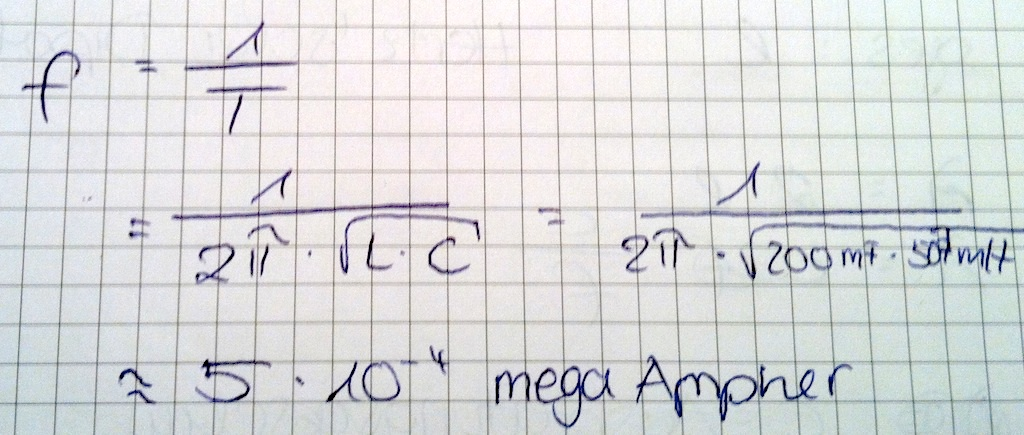 f = 1/T
= 1/(2π · √(L · C)) = 1/(2π · √(200 mF · 507 mH
≈ 5 · 10⁻⁴ mega Ampher